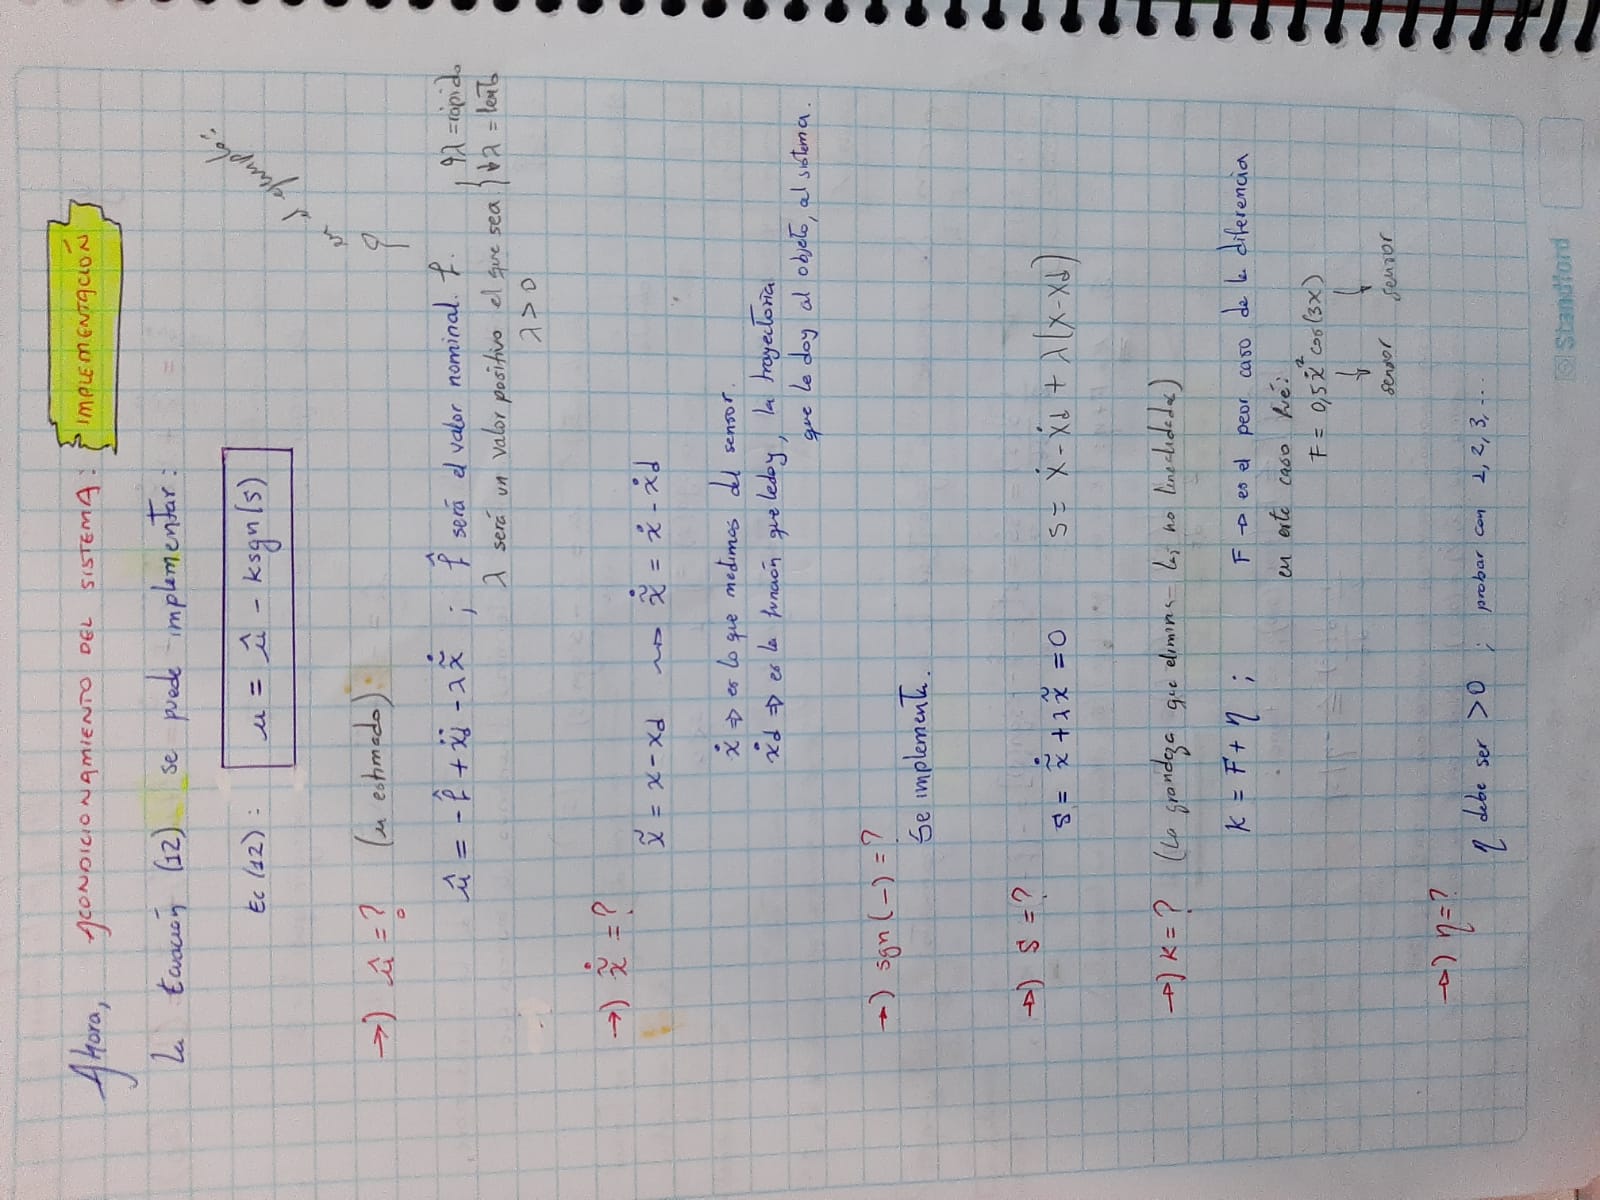 Ahora, ACONDICIONAMIENTO DEL SISTEMA: IMPLEMENTACIÓN
La Ecuación (12) se puede implementar:
Ec (12): u = û - ksgn(s)
→) û = ? (u estimado)
û = - f̂ + ẍd - λx̃̇ ; f̂ será el valor nominal. f.
λ será un valor positivo el que sea { ↑λ = rápido
↓λ = lento
λ > 0
→) x̃̇ = ?
x̃ = x - xd ⇝ x̃̇ = ẋ - ẋd
ẋ ⇒ es lo que medimos del sensor.
ẋd ⇒ es la función que le doy, la trayectoria
que le doy al objeto, al sistema.
→) sgn (-) = ?
Se implementa.
→) S = ?
S = x̃̇ + λx̃ = 0 S = ẋ - ẋd + λ(x - xd)
→) K = ? (La grandeza que elimina las no linealidades)
K = F + η ; F → es el peor caso de la diferencia
en este caso fué:
F = 0,5ẋ² cos(3x)
sensor sensor
→) η = ?
η debe ser > 0 ; probar con 1, 2, 3, ...
Standford